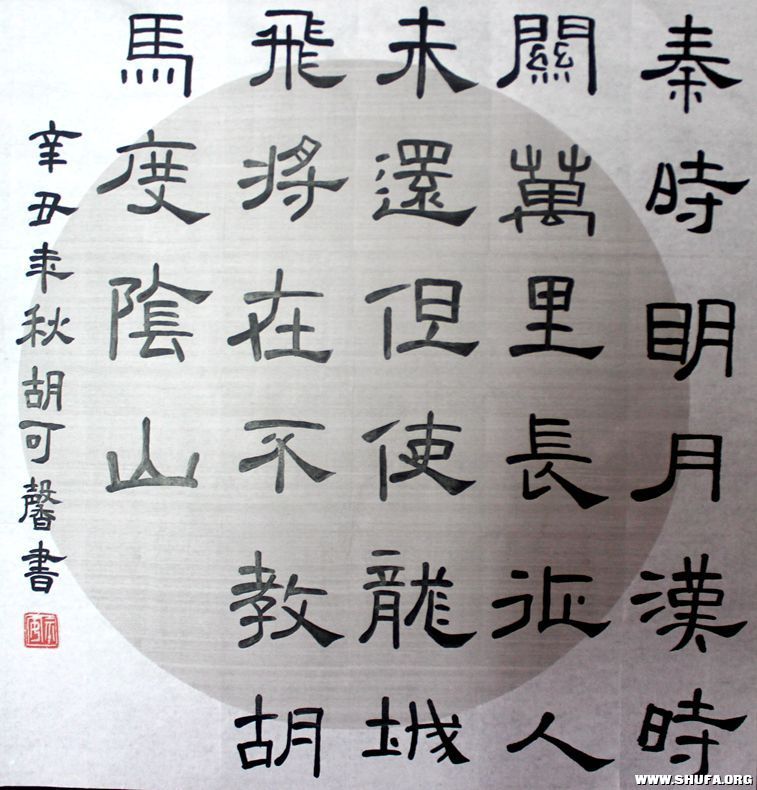 秦時明月漢時
關萬里長征人
未還但使龍城
飛將在不教胡
馬度陰山
辛丑年秋胡可馨書
WWW.SHUFA.ORG